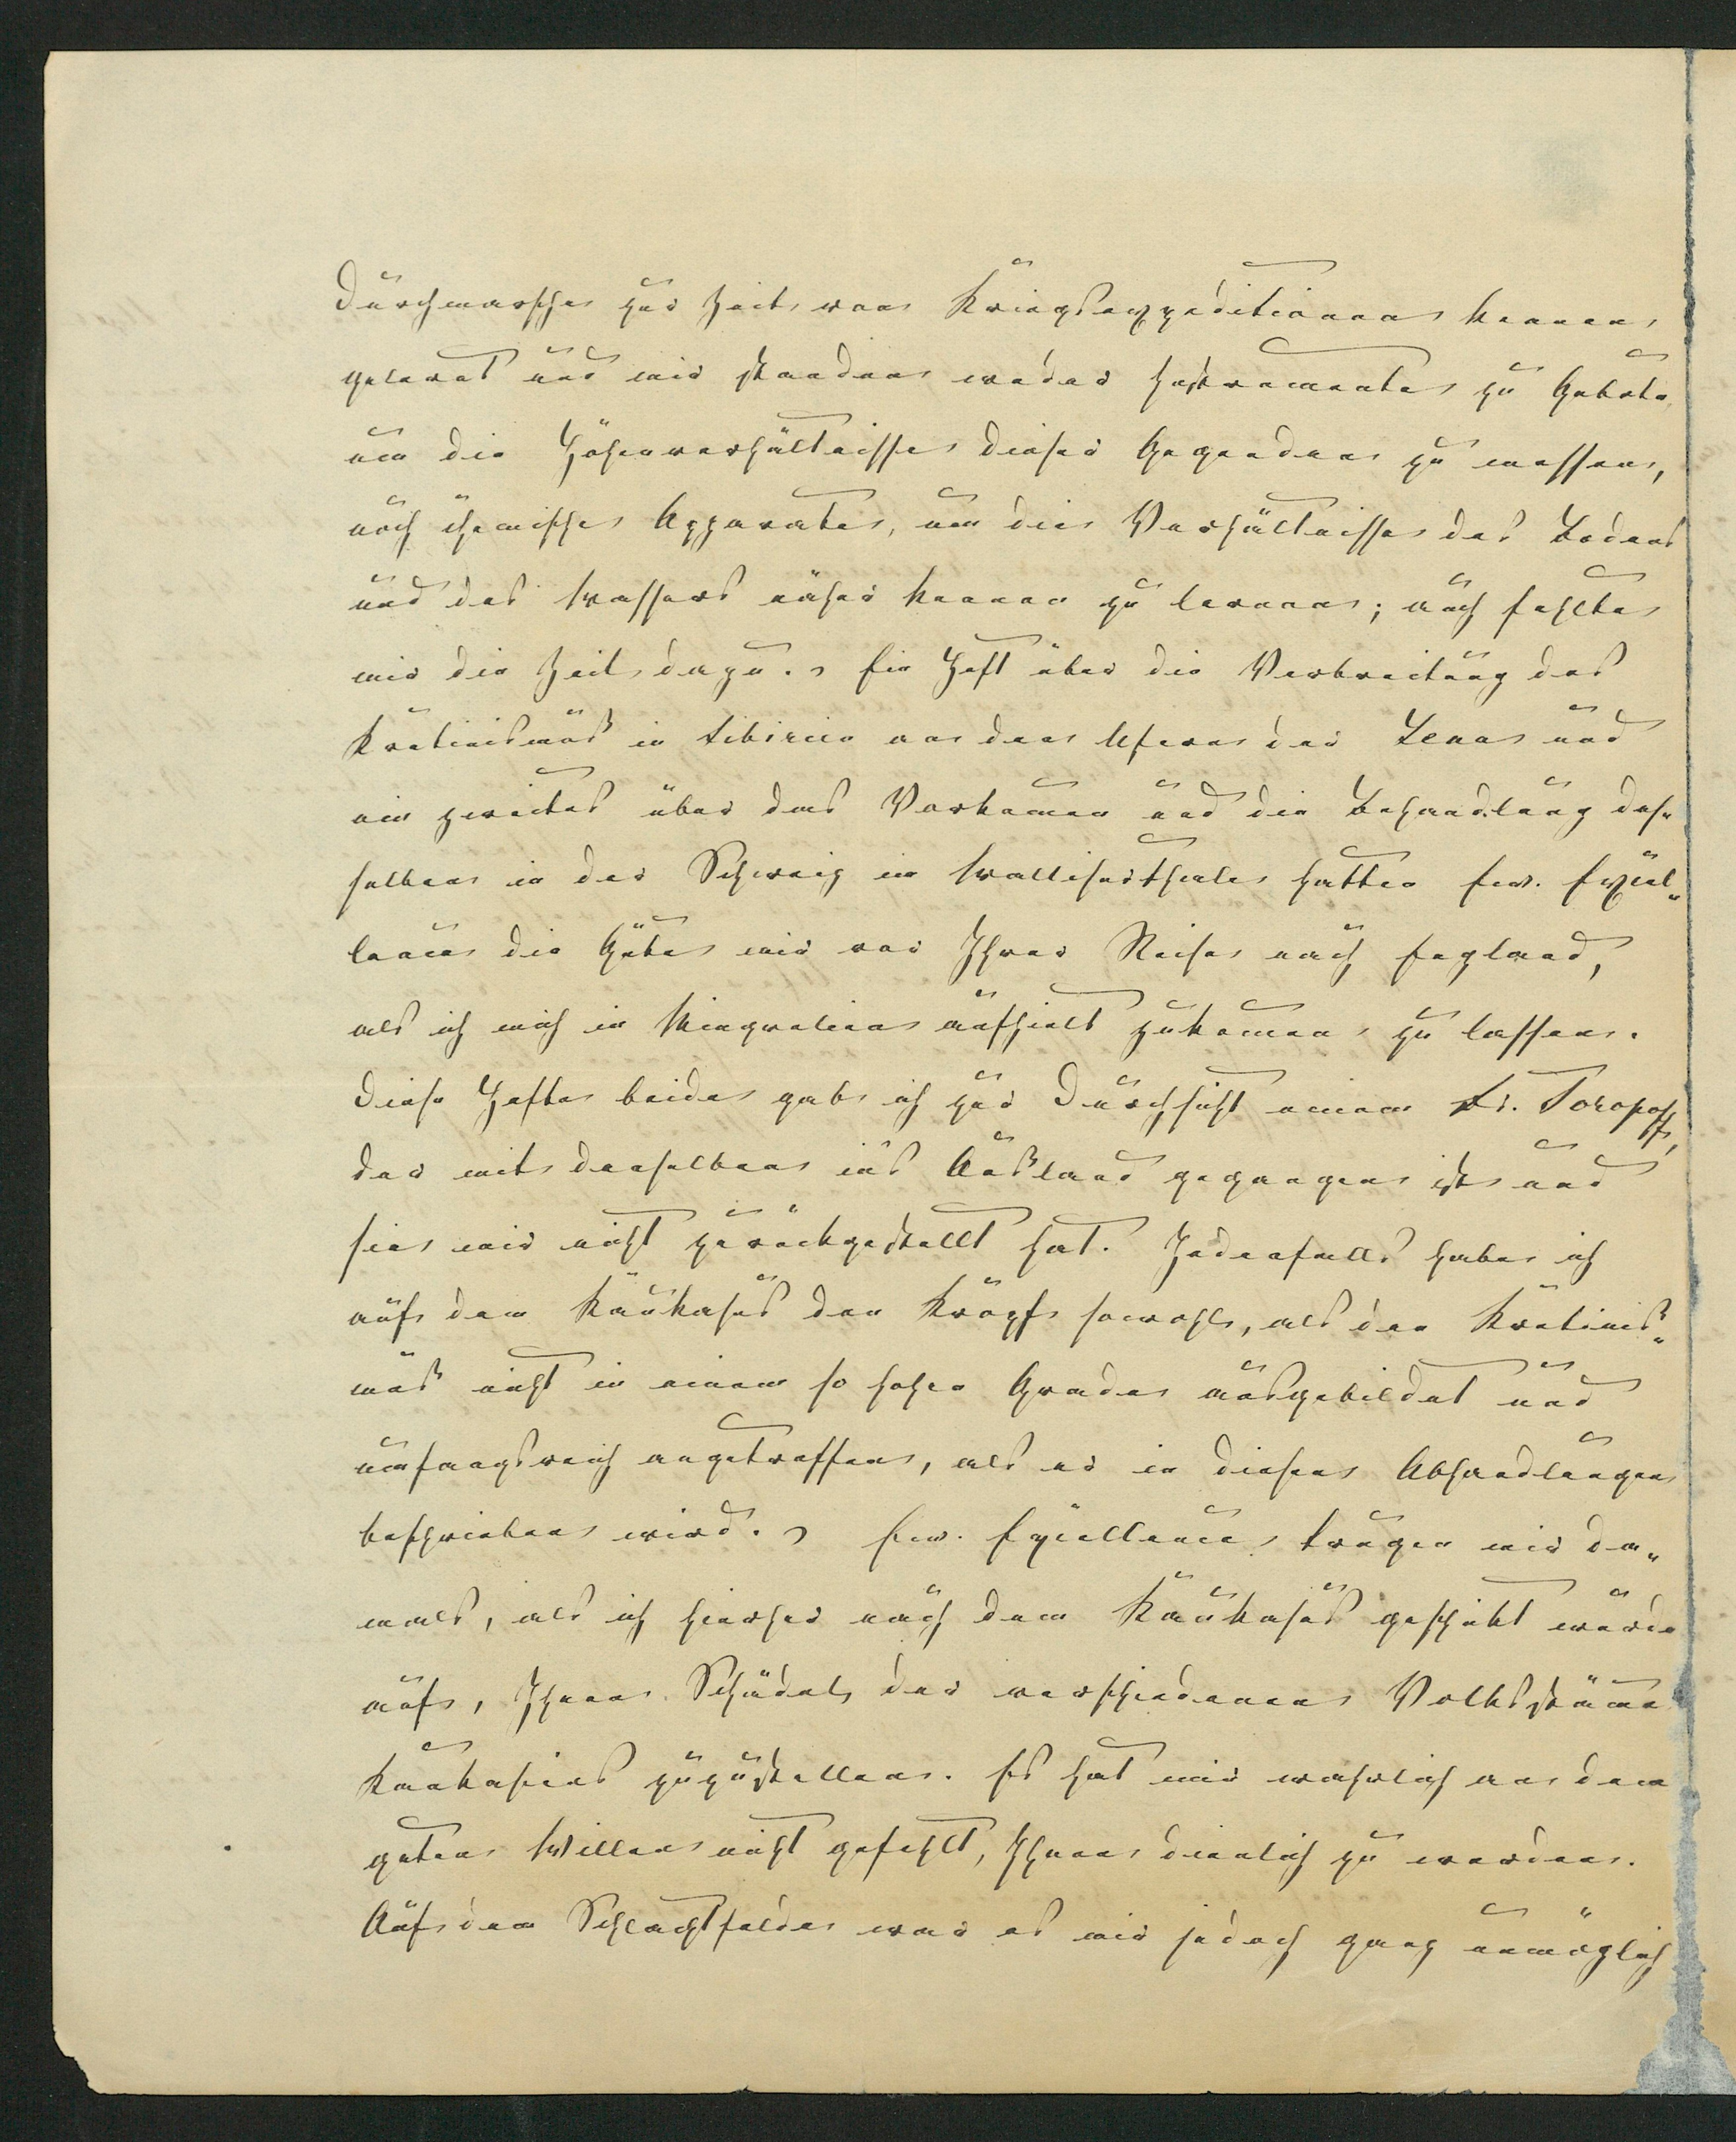 Durchmarsche zur Zeit von Kriegsexpeditionen kennen
gelernt und mir standen weder Instrumente zu Gebote,
um die Höhenverhältnisse dieser Gegenden zu messen,
noch chemische Apparate, um die Verhältnisse des Bodens
und des Wassers näher kennen zu lernen; auch fehlte
mir die Zeit dazu. Ein Heft über die Verbreitung des
Kretinismus in Sibirien an den Ufern der Lena und
ein zweites über das Vorkommen und die Behandlung des„
selben in der Schweiz im Walliserthale hatten Ew. Excel„
lence die Güte mir vor Ihrer Reise nach England,
als ich mich in Mingrelien aufhielt zukommen zu lassen.
Diese Hefte beide gab ich zur Durchsicht einem Dr. Toropoff,
der mit denselben ins Ausland gegangen ist und
sie mir nicht zurückgestellt hat. Jedenfalls habe ich
auf dem Kaukasus den Kropf sowohl, als den Kretinis„
mus nicht in einem so hohen Grade ausgebildet und
umfangsreich angetroffen, als er in diesen Abhandlungen
beschrieben wird. Ew. Excellence trugen mir da„
mals, als ich hierher nach dem Kaukasus geschickt wurde
auf, Ihnen Schädel der verschiedenen Volksstämme
Kaukasiens zuzustellen. Es hat mir wahrlich an dem
guten Willen nicht gefehlt, Ihnen dienlich zu werden.
Auf dem Schlachtfelde war es mir jedoch ganz unmöglich